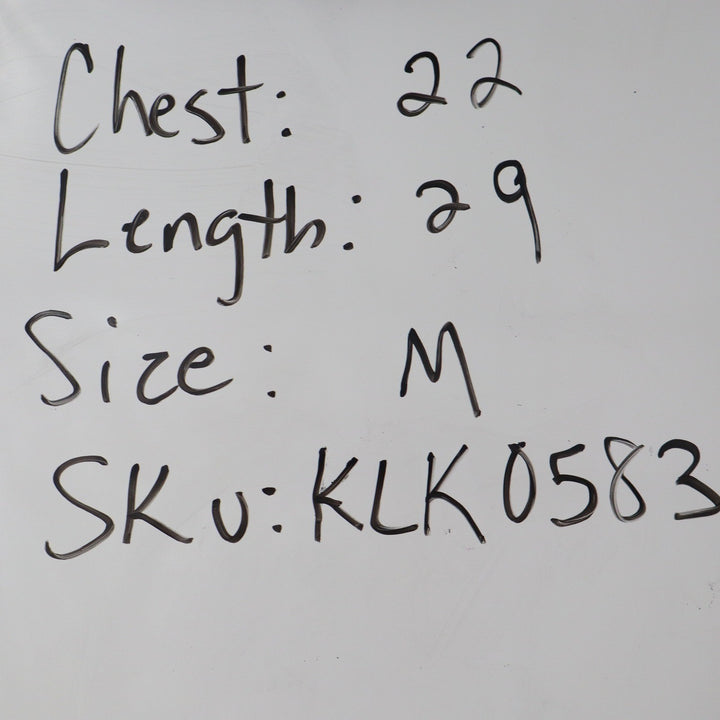 Chest: 22
Length: 29
Size: M
SKU: KLK0583